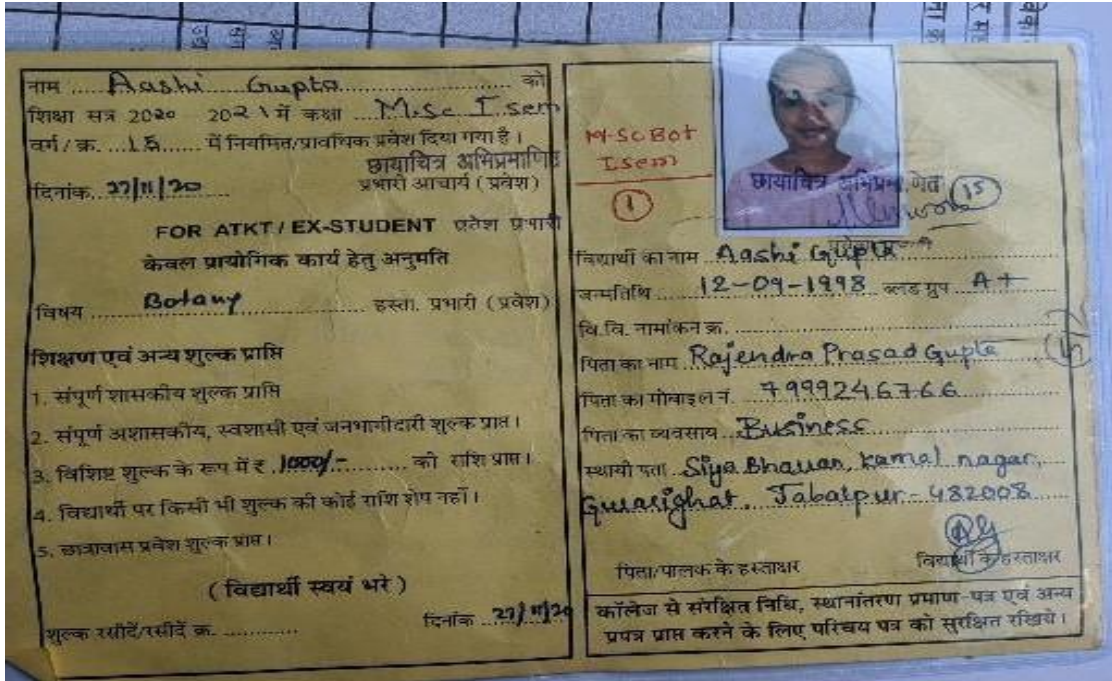 नाम ..... Aashi Gupta ..... को
शिक्षा सत्र 2020 2021 में कक्षा .... M.Sc I sem
वर्ग / क्र. ...15...... में नियमित/प्रावधिक प्रवेश दिया गया है।
छायाचित्र अभिप्रमाणित
दिनांक. 27/11/20 .... प्रभारी आचार्य ( प्रवेश )
FOR ATKT / EX-STUDENT प्रवेश प्रभारी
केवल प्रायोगिक कार्य हेतु अनुमति
विषय ...... Botany .............. हस्ता. प्रभारी ( प्रवेश )
शिक्षण एवं अन्य शुल्क प्राप्ति
1. संपूर्ण शासकीय शुल्क प्राप्ति
2. संपूर्ण अशासकीय, स्वशासी एवं जनभागीदारी शुल्क प्राप्त।
3. विशिष्ट शुल्क के रूप में ₹ .1000/-.......... की राशि प्राप्त।
4. विद्यार्थी पर किसी भी शुल्क की कोई राशि शेष नहीं।
5. छात्रावास प्रवेश शुल्क प्राप्त।
( विद्यार्थी स्वयं भरे )
शुल्क रसीदें/रसीदें क्र. ............ दिनांक ..27/11/20
M.SC BOT
I sem
1
छायाचित्र अभिप्रमाणित
15
विद्यार्थी का नाम ..Aashi Gupta
जन्मतिथि ...... 12-09-1998 .. ब्लड ग्रुप ... A+
वि.वि. नामांकन क्र. ............
पिता का नाम ..Rajendra Prasad Gupta
पिता का मोबाइल नं. ... 7999246766
पिता का व्यवसाय ..Business
स्थायी पता ..Siya Bhawan, Kamal nagar,
Gwarighat, Jabalpur - 482008
AG
पिता/पालक के हस्ताक्षर विद्यार्थी के हस्ताक्षर
कॉलेज से संरक्षित निधि, स्थानांतरण प्रमाण-पत्र एवं अन्य
प्रपत्र प्राप्त करने के लिए परिचय पत्र को सुरक्षित रखिये।